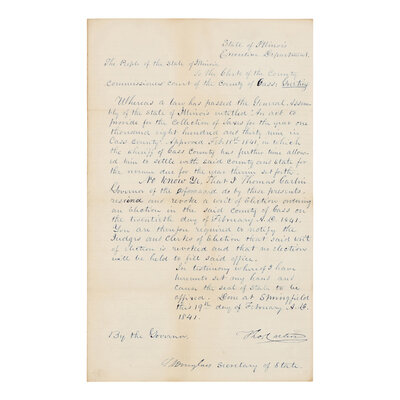 State of Illinois
Executive Department.
The People of the State of Illinois
To the Clerk of the County
Commissioners court of the County of Cass: Greeting
Whereas a law has passed the General Assem-
bly of the State of Illinois entitled "An act to
provide for the Collection of Taxes for the year one
thousand eight hundred and thirty nine in
Cass County" Approved Feb. 11th 1841, in which
the sheriff of Cass County has further time allow-
ed him to settle with said county and state for
the revenue due for the year therein set forth.
Now Know Ye, That I Thomas Carlin
Governor of the aforesaid do by these presents
rescind and revoke a writ of Election ordering
an Election in the said County of Cass on
the twentieth day of February A.D. 1841.
You are therefore required to notify the
Judges and Clerks of Election that said writ
of election is revoked and that no elections
will be held to fill said office.
In testimony whereof I have
hereunto set my hand and
cause the seal of State to be
affixed. Done at Springfield
this 19th day of February A.D.
1841.
By the Governor. Tho. Carlin
S A Douglass Secretary of State.